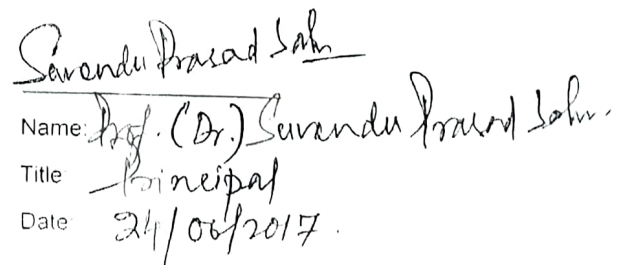 Suvendu Prasad Sahu
Name: Prof. (Dr.) Suvendu Prasad Sahu.
Title Principal
Date 24/06/2017.